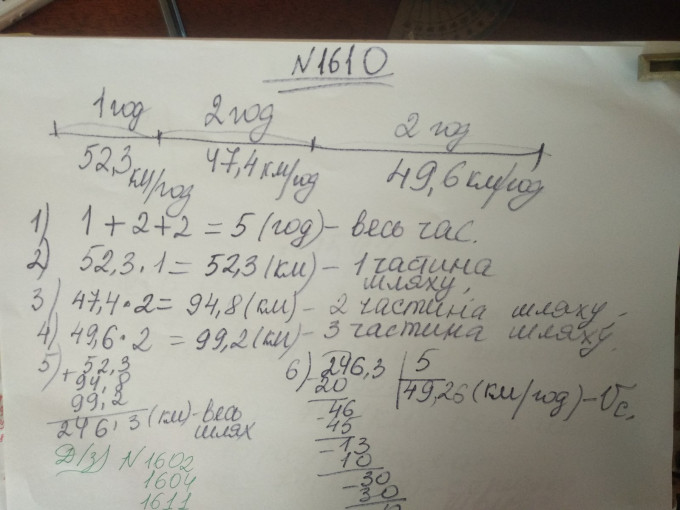 N1610
1 год 2 год 2 год
52,3 км/год 47,4 км/год 49,6 км/год
1) 1 + 2 + 2 = 5 (год) - весь час.
2) 52,3 · 1 = 52,3 (км) - 1 частина
шляху,
3) 47,4 · 2 = 94,8 (км) - 2 частина шляху,
4) 49,6 · 2 = 99,2 (км) - 3 частина шляху,
5) + 52,3
94,8
99,2
246,3 (км) - весь
шлях
6) - 246,3 | 5
20 49,26 (км/год) - Vc.
- 46
45
- 13
10
- 30
30
Д/з) N1602
1604
1611